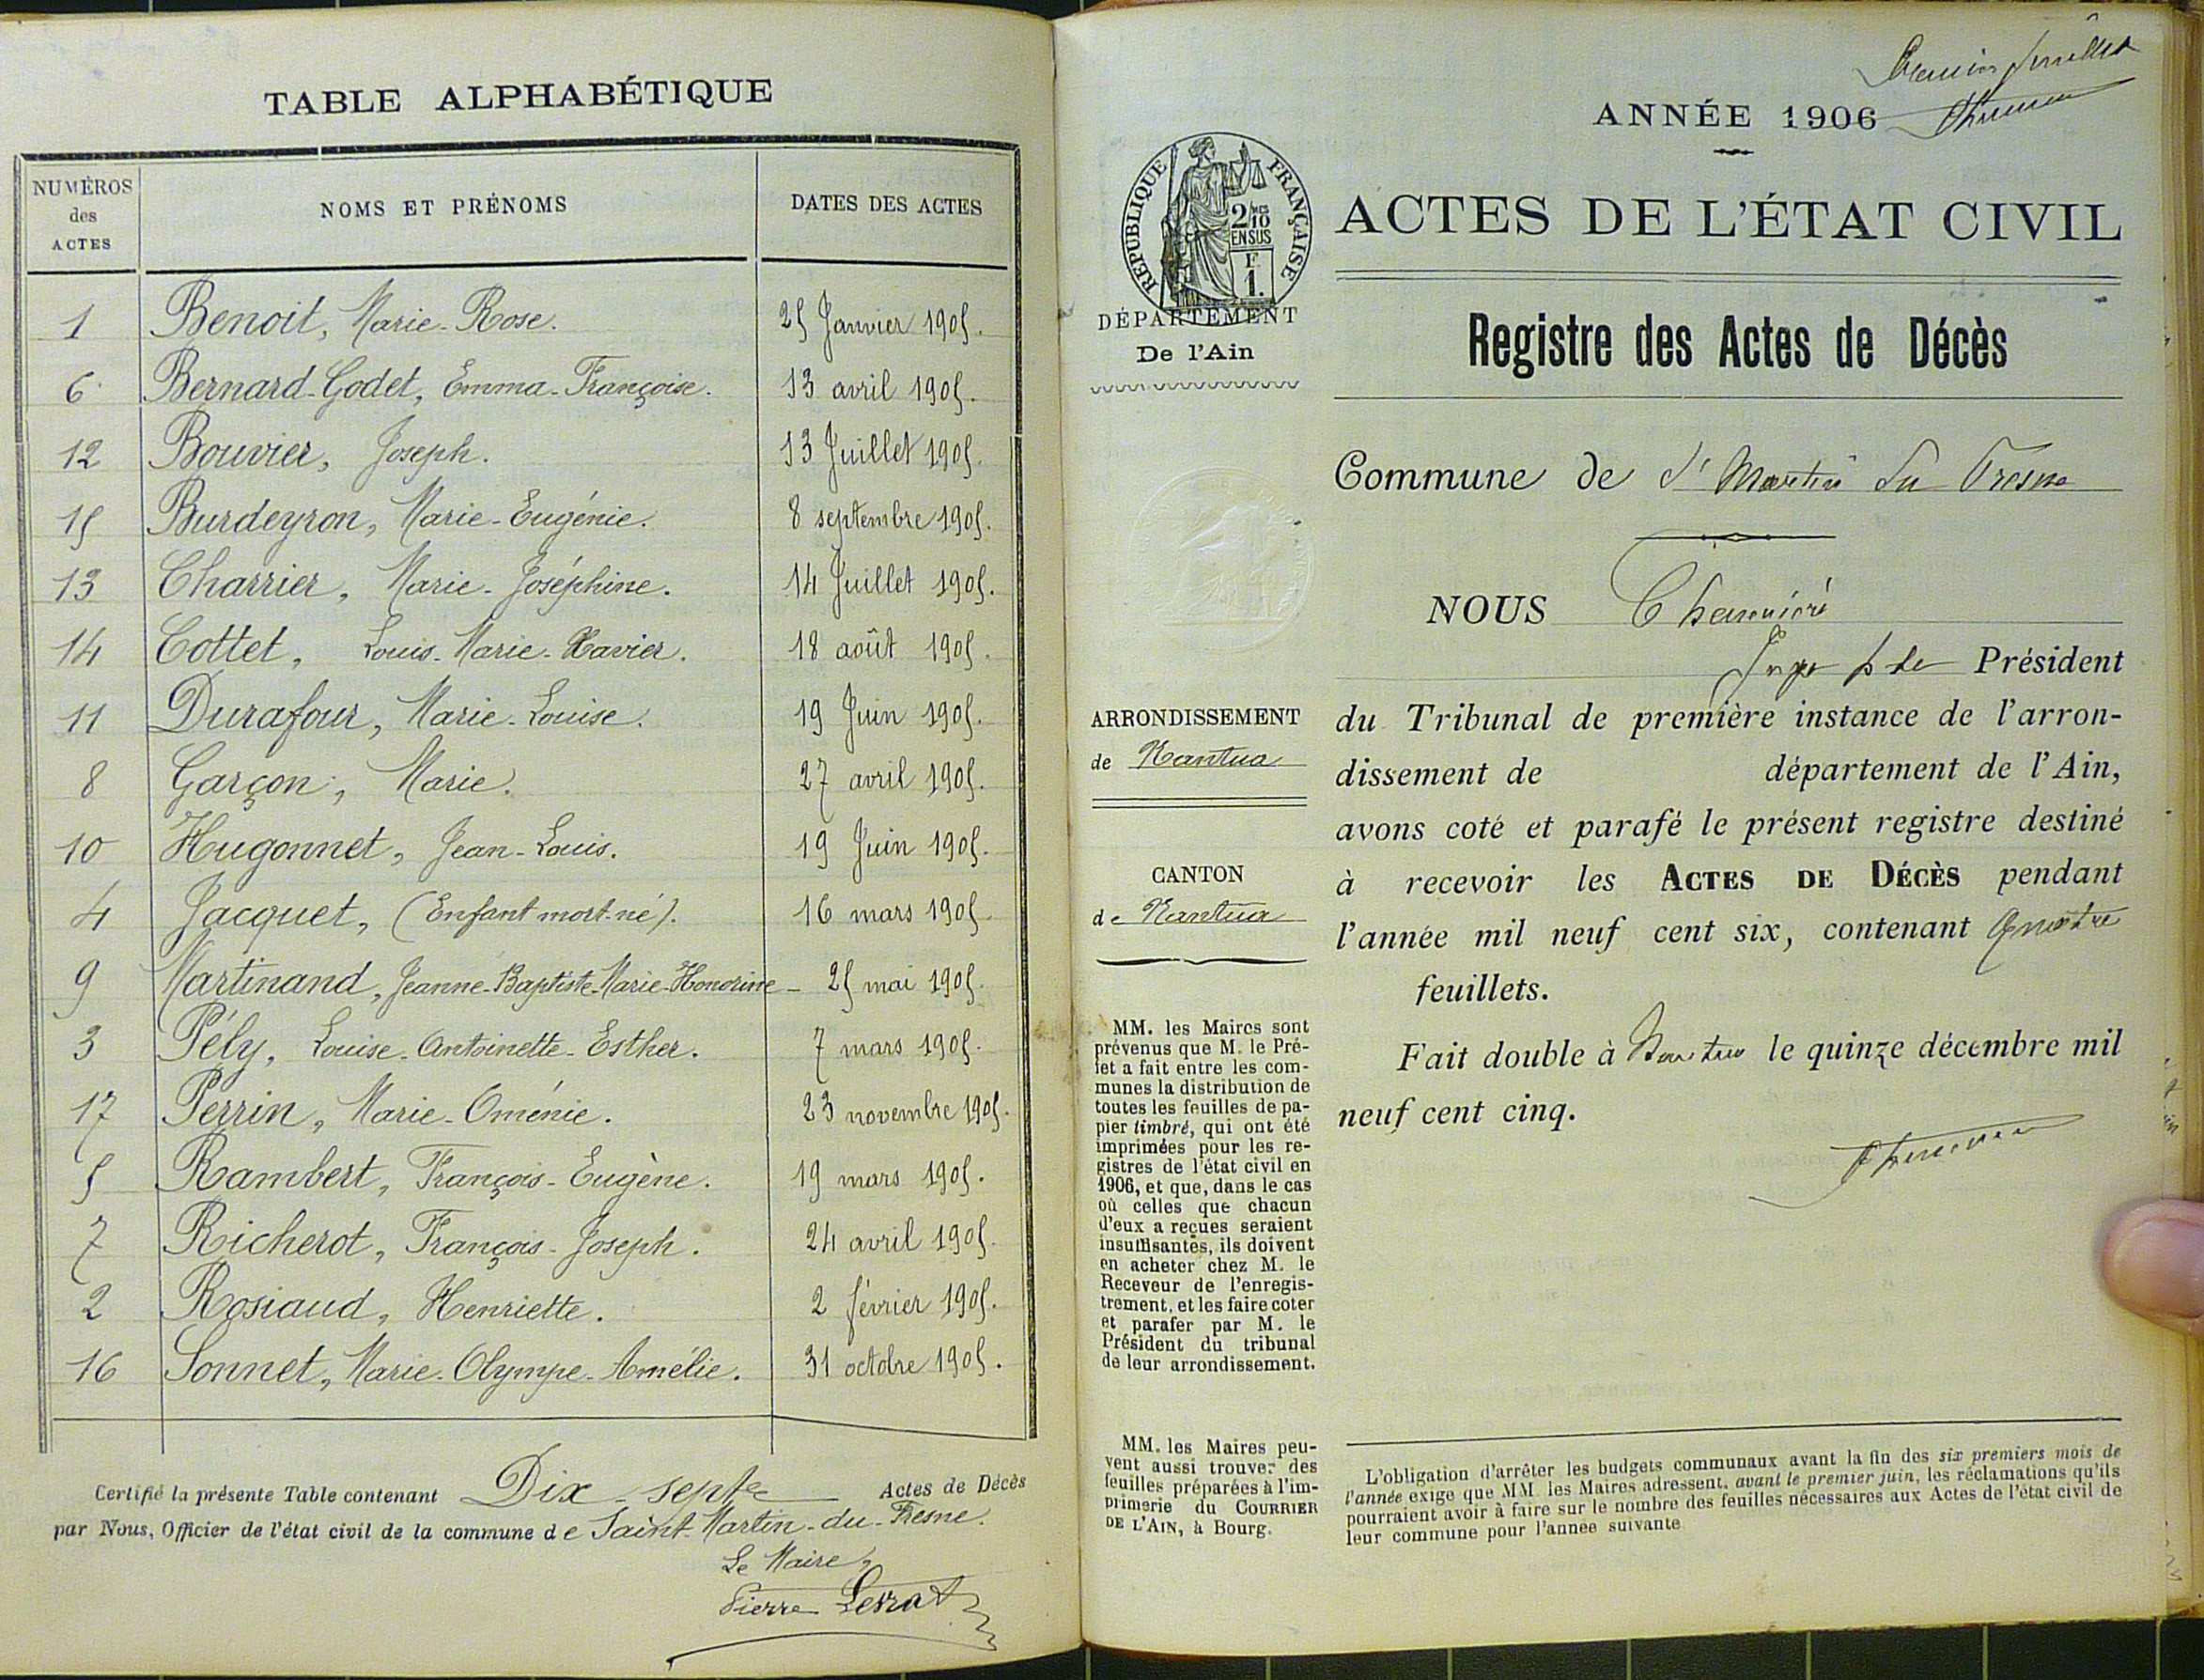 TABLE ALPHABÉTIQUE
NUMÉROS des ACTES NOMS ET PRÉNOMS DATES DES ACTES
1 Benoit, Marie-Rose. 25 Janvier 1905.
6 Bernard-Godet, Emma-Françoise. 13 avril 1905.
12 Bouvier, Joseph. 13 Juillet 1905.
15 Burdeyron, Marie-Eugénie. 8 septembre 1905.
13 Charrier, Marie-Joséphine. 14 Juillet 1905.
14 Cottet, Louis-Marie-Xavier. 18 août 1905.
11 Durafour, Marie-Louise. 19 Juin 1905.
8 Garçon, Marie. 27 avril 1905.
10 Hugonnet, Jean-Louis. 19 Juin 1905.
4 Jacquet, (Enfant mort-né). 16 mars 1905.
9 Martinand, Jeanne-Baptiste-Marie-Honorine - 25 mai 1905.
3 Pély, Louise-Antoinette-Esther. 7 mars 1905.
17 Perrin, Marie-Oménie. 23 novembre 1905.
5 Rambert, François-Eugène. 19 mars 1905.
7 Richerot, François-Joseph. 24 avril 1905.
2 Rosiaud, Henriette. 2 février 1905.
16 Sonnet, Marie-Olympe-Amélie. 31 octobre 1905.
Certifié la présente Table contenant Dix-sept Actes de Décès
par Nous, Officier de l'état civil de la commune de Saint-Martin-du-Fresne.
Le Maire,
Pierre
Premier
ANNÉE 1906
RÉPUBLIQUE FRANÇAISE
2/10
EN SUS
F
1.
ACTES DE L'ÉTAT CIVIL
DÉPARTEMENT
De l'Ain
Registre des Actes de Décès
Commune de St Martin du Fresne
NOUS
Juge Président
ARRONDISSEMENT
de Nantua
du Tribunal de première instance de l'arron-
dissement de département de l'Ain,
avons coté et parafé le présent registre destiné
CANTON
de Nantua
à recevoir les ACTES DE DÉCÈS pendant
l'année mil neuf cent six, contenant Quatre
feuillets.
Fait double à Nantua le quinze décembre mil
neuf cent cinq.
MM. les Maires sont
prévenus que M. le Pré-
fet a fait entre les com-
munes la distribution de
toutes les feuilles de pa-
pier timbré, qui ont été
imprimées pour les re-
gistres de l'état civil en
1906, et que, dans le cas
où celles que chacun
d'eux a reçues seraient
insuffisantes, ils doivent
en acheter chez M. le
Receveur de l'enregis-
trement, et les faire coter
et parafer par M. le
Président du tribunal
de leur arrondissement.
MM. les Maires peu-
vent aussi trouver des
feuilles préparées à l'im-
primerie du COURRIER
DE L'AIN, à Bourg.
L'obligation d'arrêter les budgets communaux avant la fin des six premiers mois de
l'année exige que MM. les Maires adressent, avant le premier juin, les réclamations qu'ils
pourraient avoir à faire sur le nombre des feuilles nécessaires aux Actes de l'état civil de
leur commune pour l'année suivante